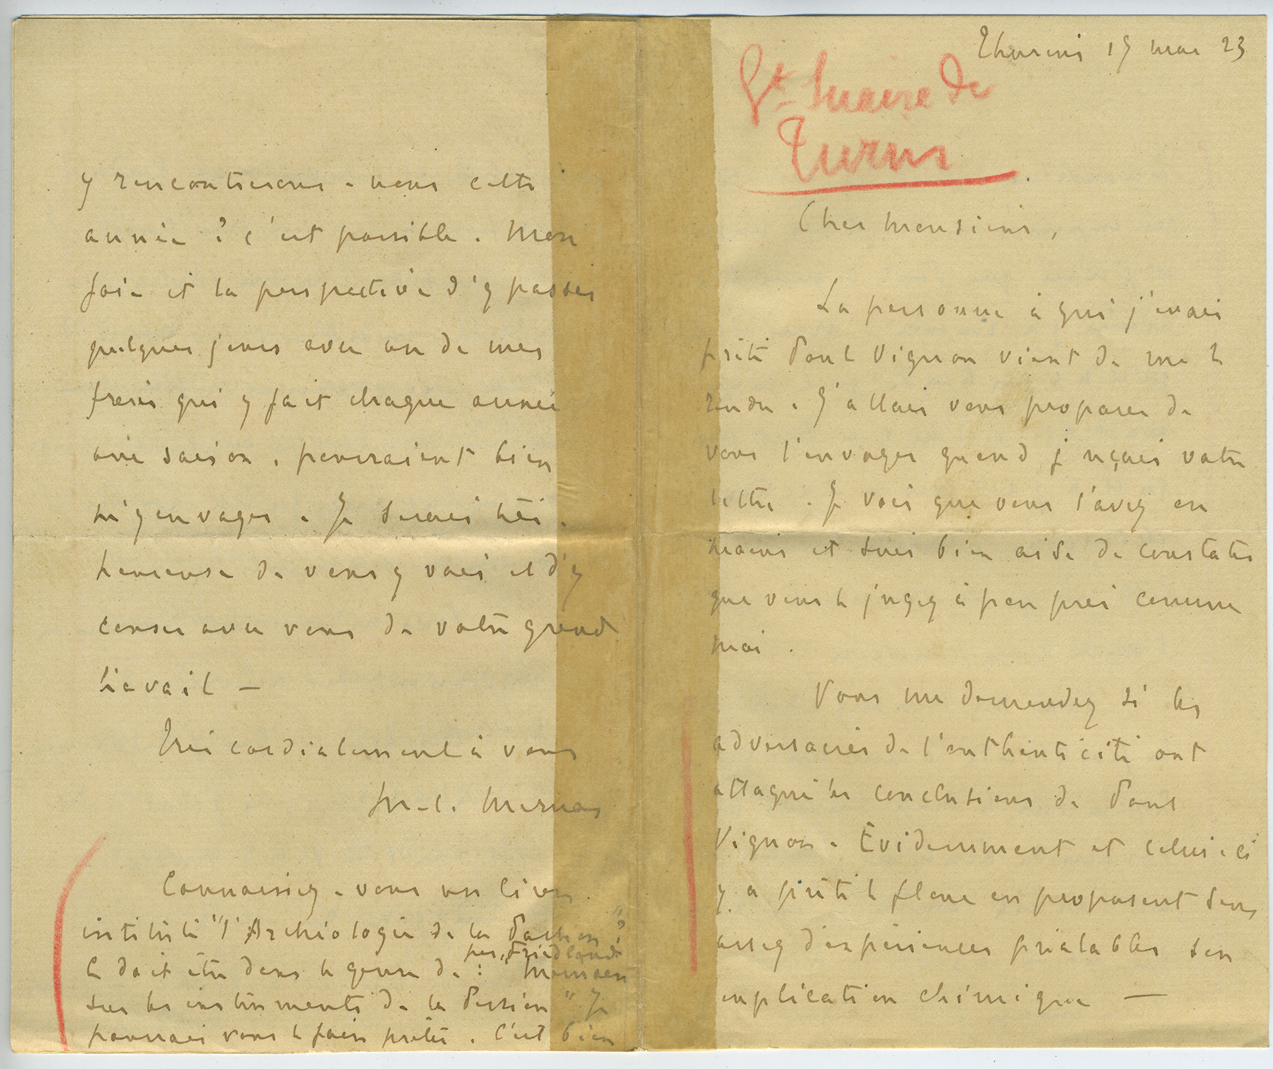 Thurins 19 mai 23
St Suaire de
Turin
Cher Monsieur,
La personne à qui j'avais
prêté Paul Vignon vient de me le
rendre. J'allais vous proposer de
vous l'envoyer quand j reçois votre
lettre. Je vois que vous l'avez en
mains et suis bien aise de constater
que vous le jugez à peu près comme
moi.
Vous me demandez si les
adversaires de l'authenticité ont
attaqué les conclusions de Paul
Vignon. Évidemment et celui-ci
y a prêté le flanc en proposant sans
assez d'expériences préalables son
explication chimique —
y rencontrerons-nous cette
année ? c'est possible. Mon
foie et la perspective d'y passer
quelques jours avec un de mes
frères qui y fait chaque année
une saison, pourraient bien
m'y envoyer. Je serais très
heureux de vous y voir et d'y
causer avec vous de votre grand
travail —
Très cordialement à vous
Connaissez-vous un livre
intitulé "l'Archéologie de la Passion"?
par Friedlieb
Il doit être dans le genre de :
sur les instruments de la Passion" Je
pourrais vous le faire prêter. C'est bien